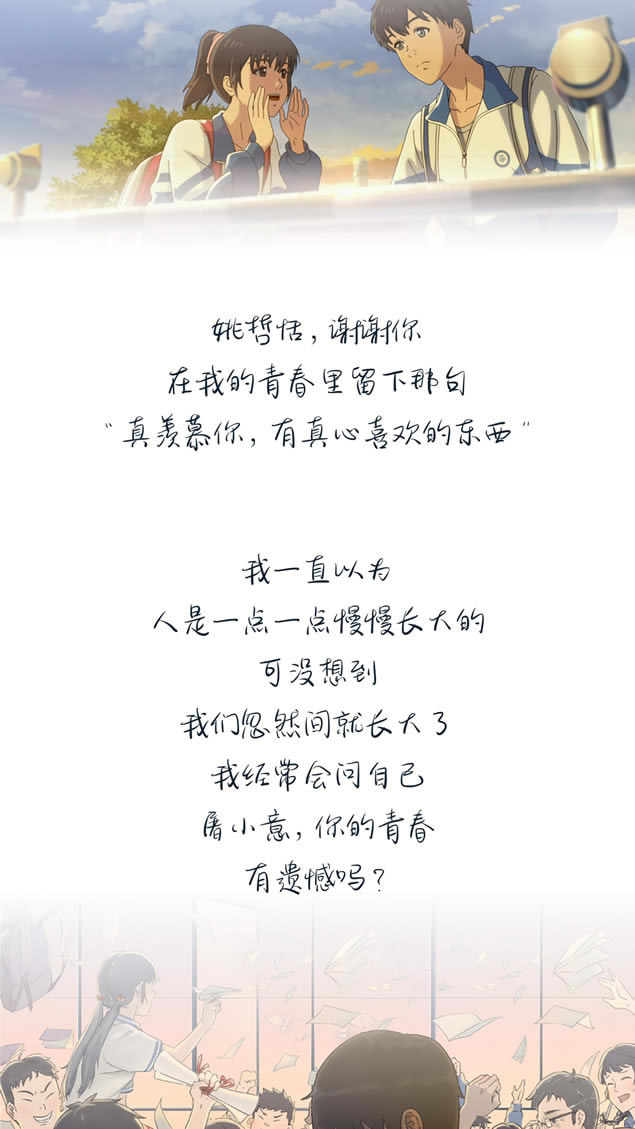 姚哲恬，谢谢你
在我的青春里留下那句
“真羡慕你，有真心喜欢的东西”
我一直以为
人是一点一点慢慢长大的
可没想到
我们忽然间就长大了
我经常会问自己
屠小意，你的青春
有遗憾吗？